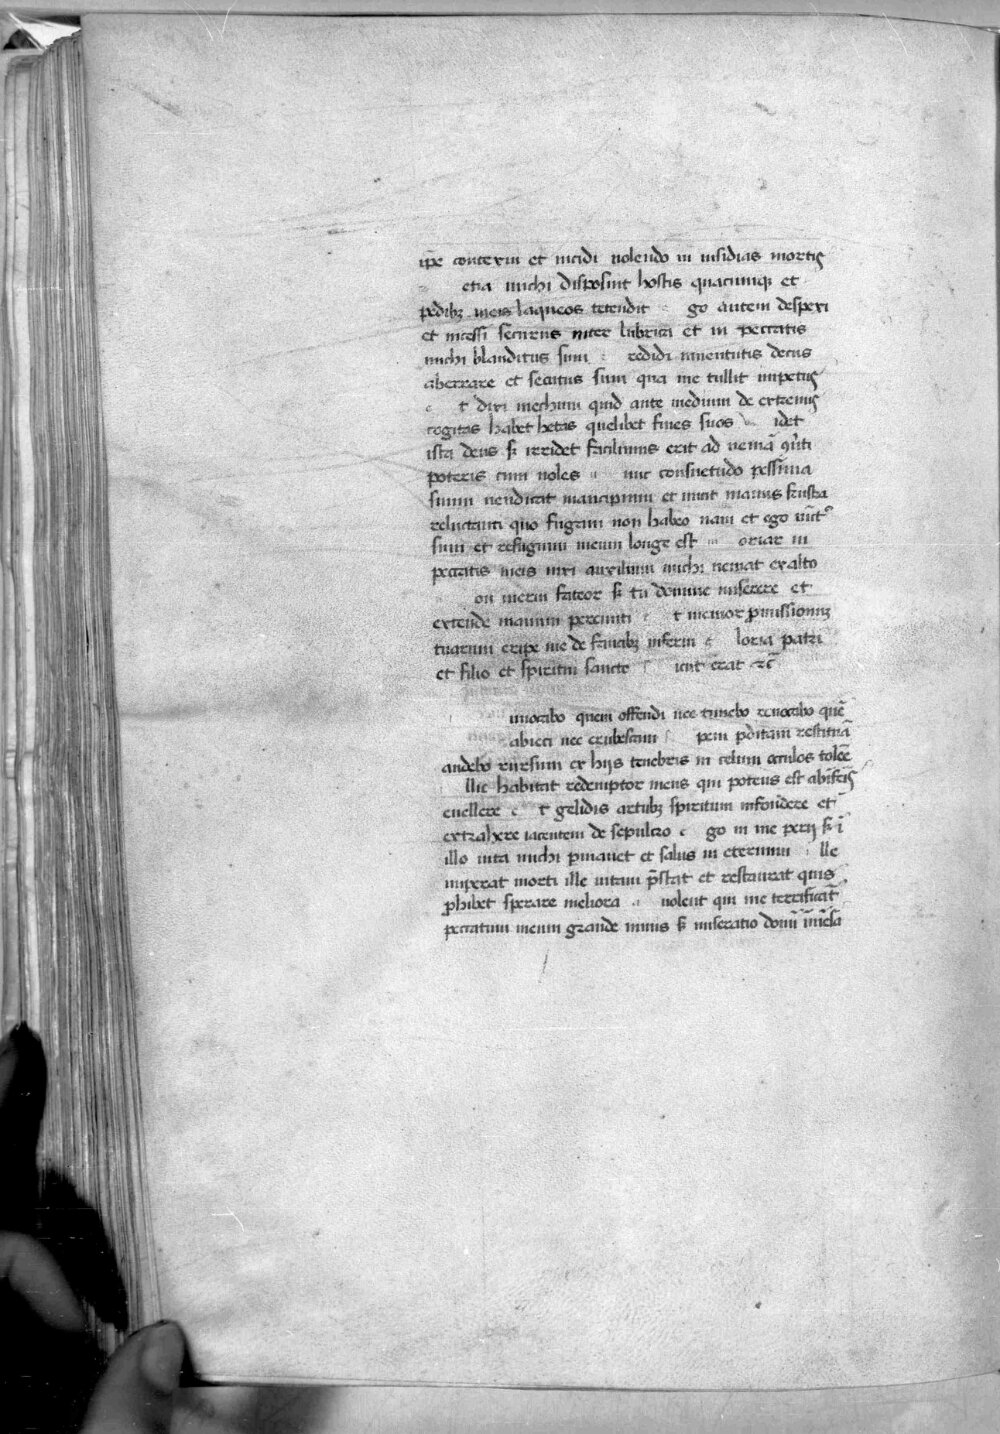 ip̄e contexui et incidi uolendo in insidias mortis
etia michi disposuit hostis quacumqꝫ et
pedibꝫ meis laqueos tetendit go autem despexi
et incessi securus inter lubrica et in peccatis
michi blanditus sum redidi iuuentutis decus
aberrare et secutus sum qua me tullit impetus
t dixi mechum quid ante medium de extremis
cogitas habet hetas quelibet fines suos idet
ista deus sꝫ irridet facilimus erit ad uemā
poteris cum uoles nūc consuetudo pessima
suum uendicat mancipium et inicit manus frusta
reluctanti quo fugiam non habeo nam et ego uīctꝰ
sum et refugium meum longe est oriar in
peccatis meis nixi auxilium michi ueniat exalto
on merui fateor sꝫ tu domine miserere et
extende manum pereunti t memor p̱missionuꝫ
tuarum eripe me de faucibꝫ inferni loria patri
et filio et spiritui sancto icut erat ⁊c̄
inuocabo quem offendi nec timebo reuocabo quē
abieci nec erubescam pem p̱ditam restituā
audebo rursum ex hijs tenebris in celum occulos tolēe
llic habitat redemptor meus qui potens est ab īferis
euellere t gelidis artubꝫ spiritum infundere et
extrahere iacentem de sepulcro go in me perij sꝫ ī
illo uita michi p̱manet et salus in eternum lle
imperat morti ille uitam p̄stat et restaurat quis
p̱hibet sperare meliora uolent qui me terrificāt
peccatum meum grande nimis sꝫ miseratio domī īmēsa